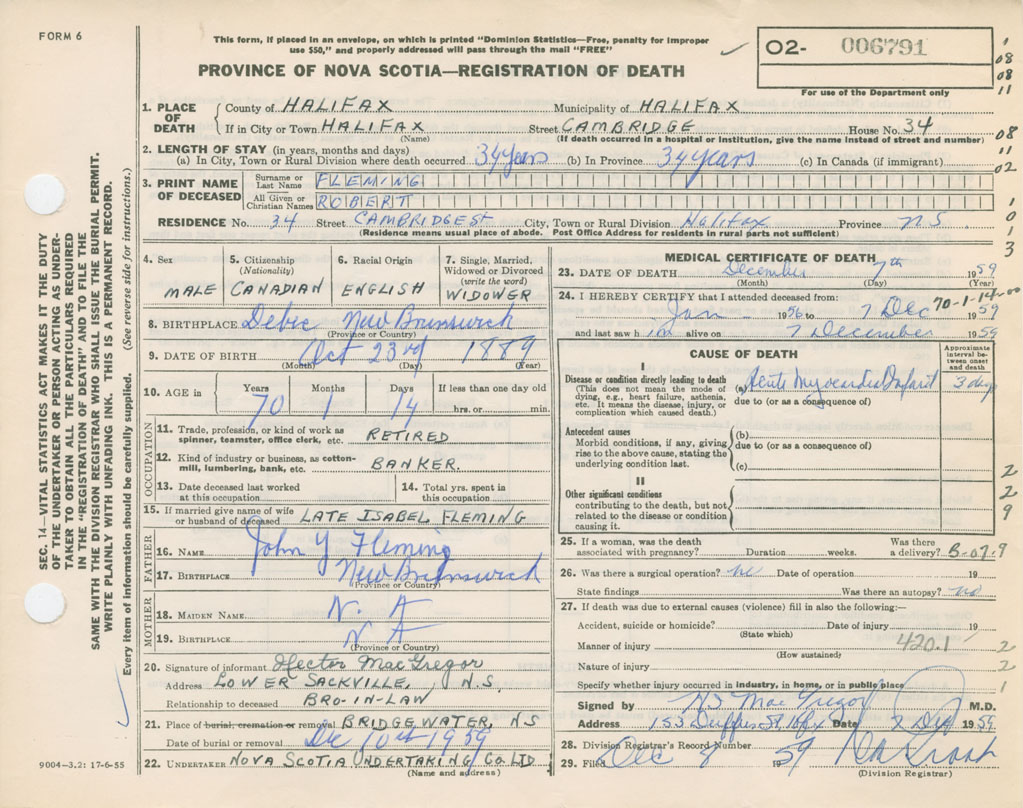 FORM 6
This form, if placed in an envelope, on which is printed "Dominion Statistics—Free, penalty for improper
use $50," and properly addressed will pass through the mail "FREE"
PROVINCE OF NOVA SCOTIA—REGISTRATION OF DEATH
02- 006791
For use of the Department only
1
08
08
11
08
11
02
1
0
1
3
SEC. 14—VITAL STATISTICS ACT MAKES IT THE DUTY
OF THE UNDERTAKER OR PERSON ACTING AS UNDER-
TAKER TO OBTAIN ALL THE PARTICULARS REQUIRED
IN THE "REGISTRATION OF DEATH" AND TO FILE THE
SAME WITH THE DIVISION REGISTRAR WHO SHALL ISSUE THE BURIAL PERMIT.
WRITE PLAINLY WITH UNFADING INK. THIS IS A PERMANENT RECORD.
Every item of information should be carefully supplied. (See reverse side for instructions.)
1. PLACE OF DEATH County of HALIFAX Municipality of HALIFAX
If in City or Town HALIFAX Street CAMBRIDGE House No. 34
(Name) (If death occurred in a hospital or institution, give the name instead of street and number)
2. LENGTH OF STAY (in years, months and days)
(a) In City, Town or Rural Division where death occurred 34 years (b) In Province 34 years (c) In Canada (if immigrant)
3. PRINT NAME OF DECEASED Surname or Last Name FLEMING
All Given or Christian Names ROBERT
RESIDENCE No. 34 Street CAMBRIDGE St City, Town or Rural Division Halifax Province N.S
(Residence means usual place of abode. Post Office Address for residents in rural parts not sufficient)
4. Sex MALE
5. Citizenship (Nationality) CANADIAN
6. Racial Origin ENGLISH
7. Single, Married, Widowed or Divorced (write the word) WIDOWER
8. BIRTHPLACE Debec New Brunswick
(Province or Country)
9. DATE OF BIRTH Oct 23rd 1889
(Month) (Day) (Year)
10. AGE in Years 70 Months 1 Days 14 If less than one day old
hrs. or min.
OCCUPATION
11. Trade, profession, or kind of work as
spinner, teamster, office clerk, etc. RETIRED
12. Kind of industry or business, as cotton-
mill, lumbering, bank, etc. BANKER.
13. Date deceased last worked
at this occupation
14. Total yrs. spent in
this occupation
15. If married give name of wife
or husband of deceased LATE ISABEL FLEMING
FATHER
16. NAME John Y Fleming
17. BIRTHPLACE New Brunswick
(Province or Country)
MOTHER
18. MAIDEN NAME N. A
19. BIRTHPLACE N A
(Province or Country)
20. Signature of informant Hector MacGregor
Address LOWER SACKVILLE, N.S.
Relationship to deceased BRO-IN-LAW
21. Place of burial, cremation or removal BRIDGEWATER, NS
Date of burial or removal Dec 10th 1959
22. UNDERTAKER NOVA SCOTIA UNDERTAKING CO. LTD
(Name and address)
9004—3.2: 17-6-55
MEDICAL CERTIFICATE OF DEATH
23. DATE OF DEATH December 7th 1959
(Month) (Day) (Year)
24. I HEREBY CERTIFY that I attended deceased from: 70-1-14-00
Jan 1956 to 7 Dec 1959
and last saw him alive on 7 December 1959
CAUSE OF DEATH
Approximate interval between onset and death
I
Disease or condition directly leading to death
(This does not mean the mode of
dying, e.g., heart failure, asthenia,
etc. It means the disease, injury, or
complication which caused death.)
(a) Acute Myocardial Infarct 3 days
due to (or as a consequence of)
Antecedent causes
Morbid conditions, if any, giving
rise to the above cause, stating the
underlying condition last.
(b)
due to (or as a consequence of)
(c)
II
Other significant conditions
contributing to the death, but not
related to the disease or condition
causing it.
2
2
9
25. If a woman, was the death
associated with pregnancy? Duration weeks. Was there a delivery? B-07.9
26. Was there a surgical operation? no Date of operation 19
State findings Was there an autopsy? no
27. If death was due to external causes (violence) fill in also the following:—
Accident, suicide or homicide? Date of injury 19
(State which)
Manner of injury 420.1 2
(How sustained)
Nature of injury 2
Specify whether injury occurred in industry, in home, or in public place 1
Signed by MacGregor M.D.
Address 153 St. Hfx Date 7 Dec 1959
28. Division Registrar's Record Number
29. Filed Dec 8 1959
(Division Registrar)